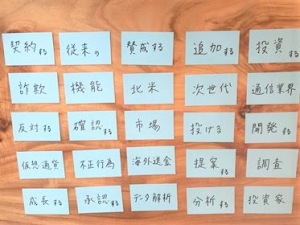 契約する 従来の 賛成する 追加する 投資する
詐欺 機能 北米 次世代 通信業界
反対する 確認する 市場 投げる 開発する
仮想通貨 不正行為 海外送金 提案する 調査
成長する 承認する データ解析 分析する 投資家